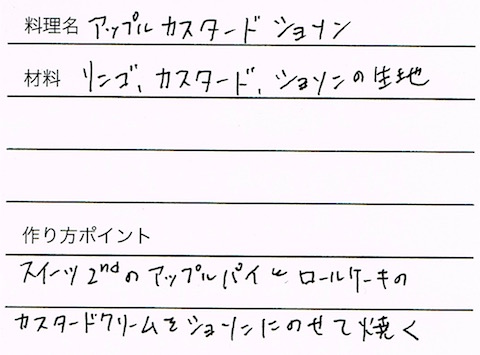 料理名 アップルカスタードショソン
材料 リンゴ、カスタード、ショソンの生地
作り方ポイント
スイーツ2ndのアップルパイとロールケーキの
カスタードクリームをショソンにのせて焼く